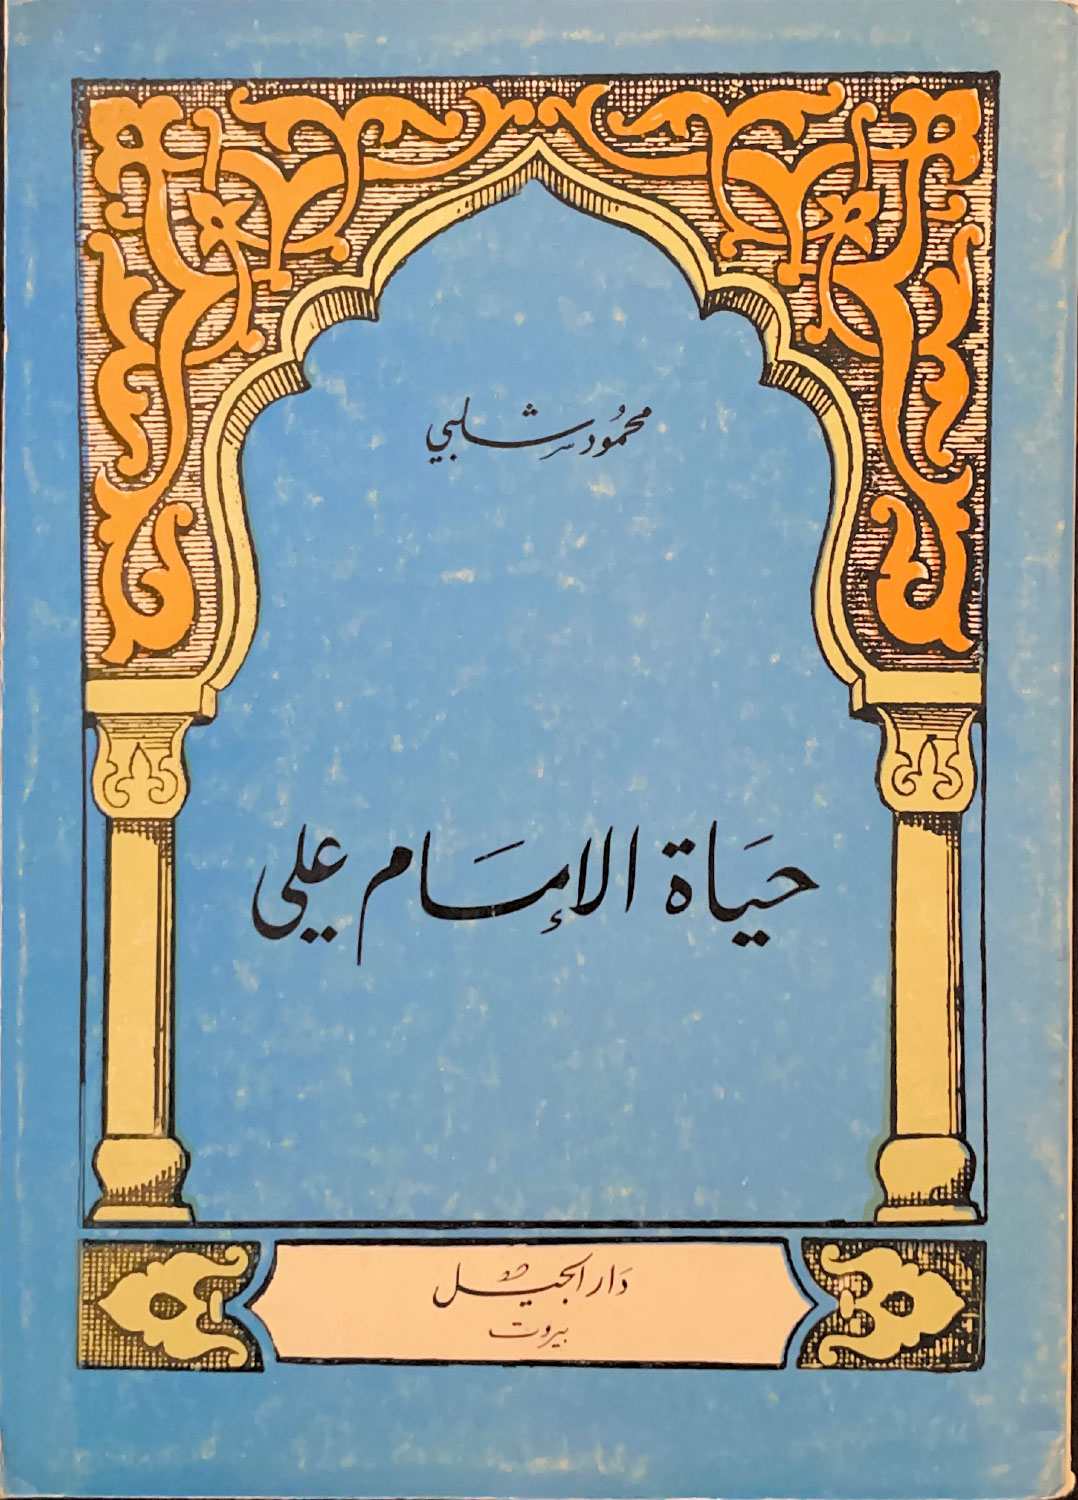 محمُود شلبي
حيَاة الإمَام علي
دَار الجيل
بيروت